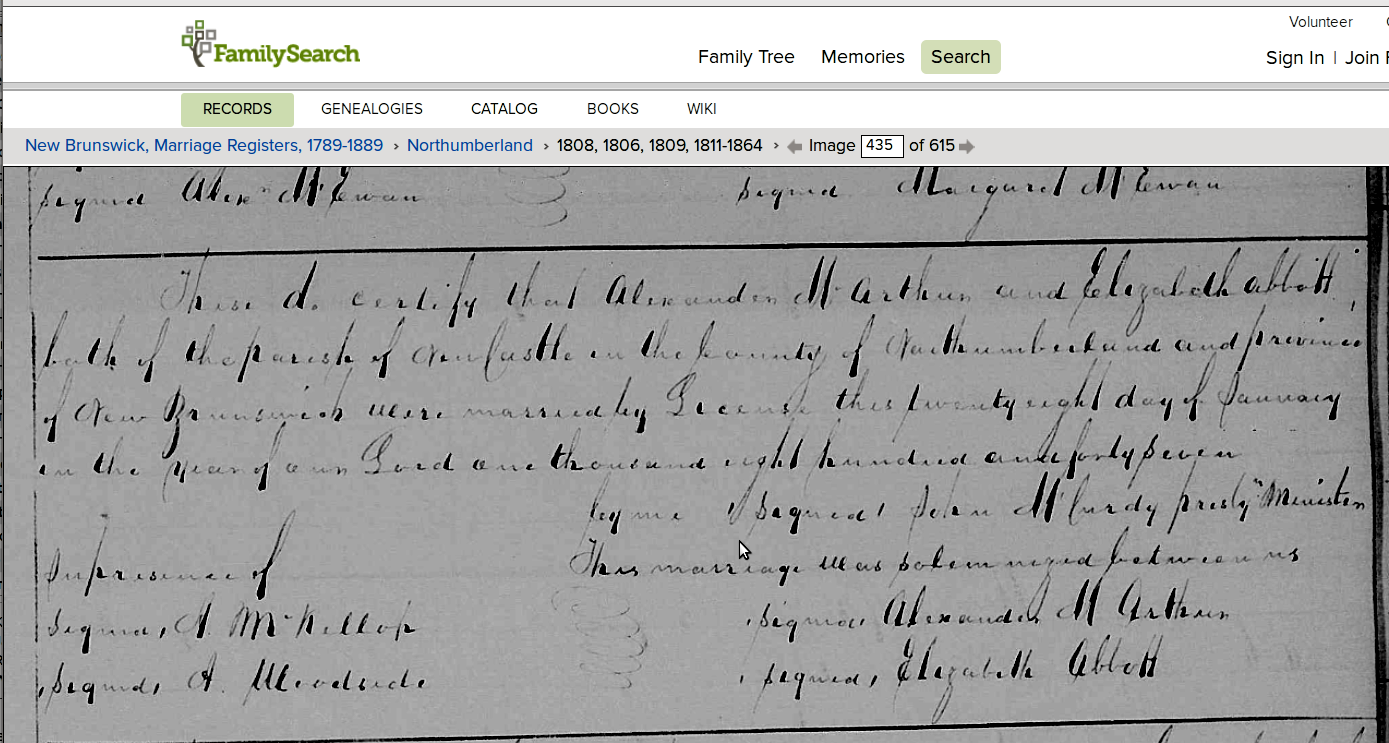 Volunteer
FamilySearch
Family Tree Memories Search
Sign In | Join
RECORDS GENEALOGIES CATALOG BOOKS WIKI
New Brunswick, Marriage Registers, 1789-1889 › Northumberland › 1808, 1806, 1809, 1811-1864 › Image 435 of 615
signed Alexr McEwan signed Margaret McEwan
These do certify that Alexander McArthur and Elizabeth abbott,
both of the parish of NewCastle in the County of Northumberland and province
of New Brunswick were married by License this twenty eight day of January
in the year of our Lord one thousand eight hundred and forty seven
by me signed John McCurdy presby Minister
In presence of This marriage was solemnized between us
signed, A. McKellop signed Alexander McArthur
signed, A. Woodside signed, Elizabeth Abbott